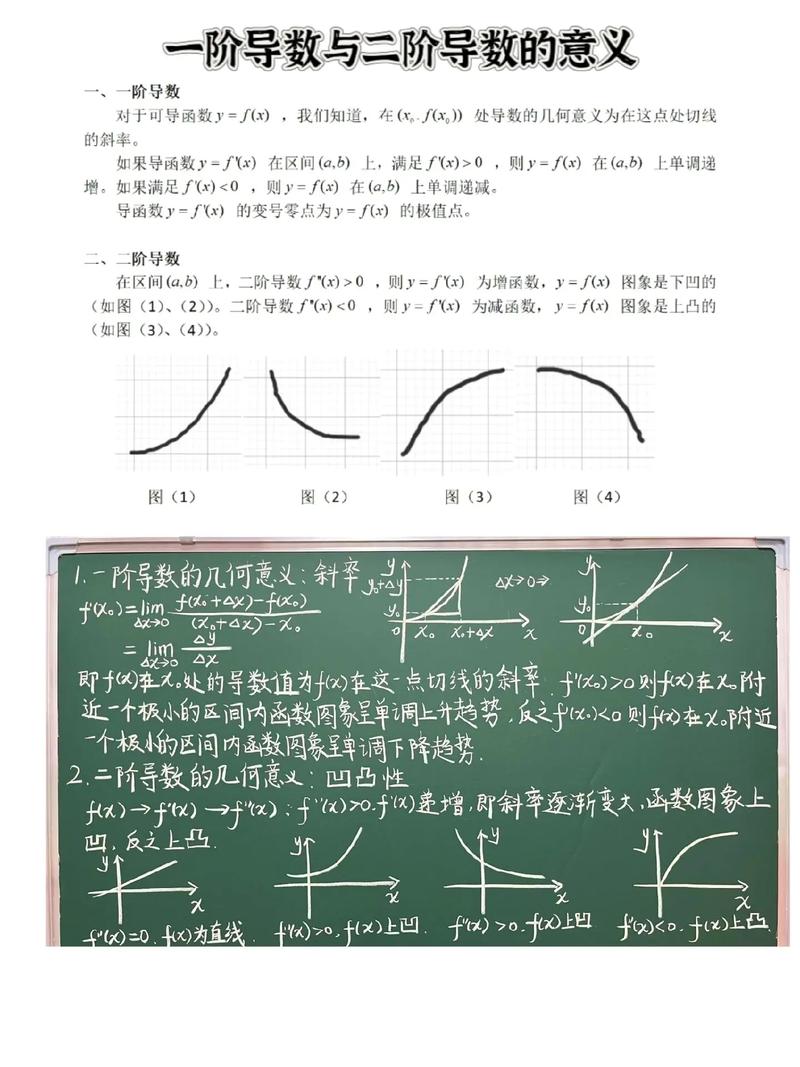 一阶导数与二阶导数的意义
一、一阶导数
对于可导函数 y = f(x) ，我们知道，在 (x₀, f(x₀)) 处导数的几何意义为在这点处切线
的斜率。
如果导函数 y = f'(x) 在区间 (a,b) 上，满足 f'(x) > 0 ，则 y = f(x) 在 (a,b) 上单调递
增。如果满足 f'(x) < 0 ，则 y = f(x) 在 (a,b) 上单调递减。
导函数 y = f'(x) 的变号零点为 y = f(x) 的极值点。
二、二阶导数
在区间 (a,b) 上，二阶导数 f''(x) > 0 ，则 y = f'(x) 为增函数，y = f(x) 图象是下凹的
（如图（1）、（2））。二阶导数 f''(x) < 0 ，则 y = f'(x) 为减函数，y = f(x) 图象是上凸的
（如图（3）、（4））。
图（1） 图（2） 图（3） 图（4）
1.一阶导数的几何意义：斜率
f'(x₀)=lim Δx→0 f(x₀+Δx)-f(x₀) / (x₀+Δx)-x₀
= lim Δx→0 Δy / Δx
y y₀+Δy y₀ 0 x₀ x₀+Δx x
Δx→0⇒
y y₀ 0 x₀ x
即f(x)在x₀处的导数值为f(x)在这一点切线的斜率. f'(x₀)>0则f(x)在x₀附
近一个极小的区间内函数图象呈单调上升趋势, 反之f'(x₀)<0则f(x)在x₀附近
一个极小的区间内函数图象呈单调下降趋势.
2.二阶导数的几何意义：凹凸性
f(x)→f'(x)→f''(x)：f''(x)>0.f'(x)递增,即斜率逐渐变大,函数图象上
凹,反之上凸.
y x y x y x y x
f''(x)=0. f(x)为直线. f''(x)>0. f(x)上凹. f''(x)>0. f(x)上凹 f''(x)<0. f(x)上凸.